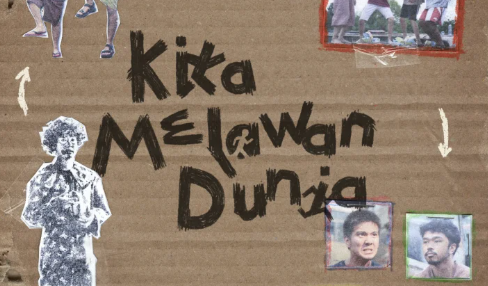 Kita
MElawan
Dunia